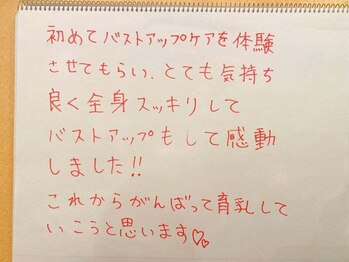 初めてバストアップケアを体験
させてもらい、とても気持ち
良く全身スッキリして
バストアップもして感動
しました!!
これからがんばって育乳して
いこうと思います♡♡